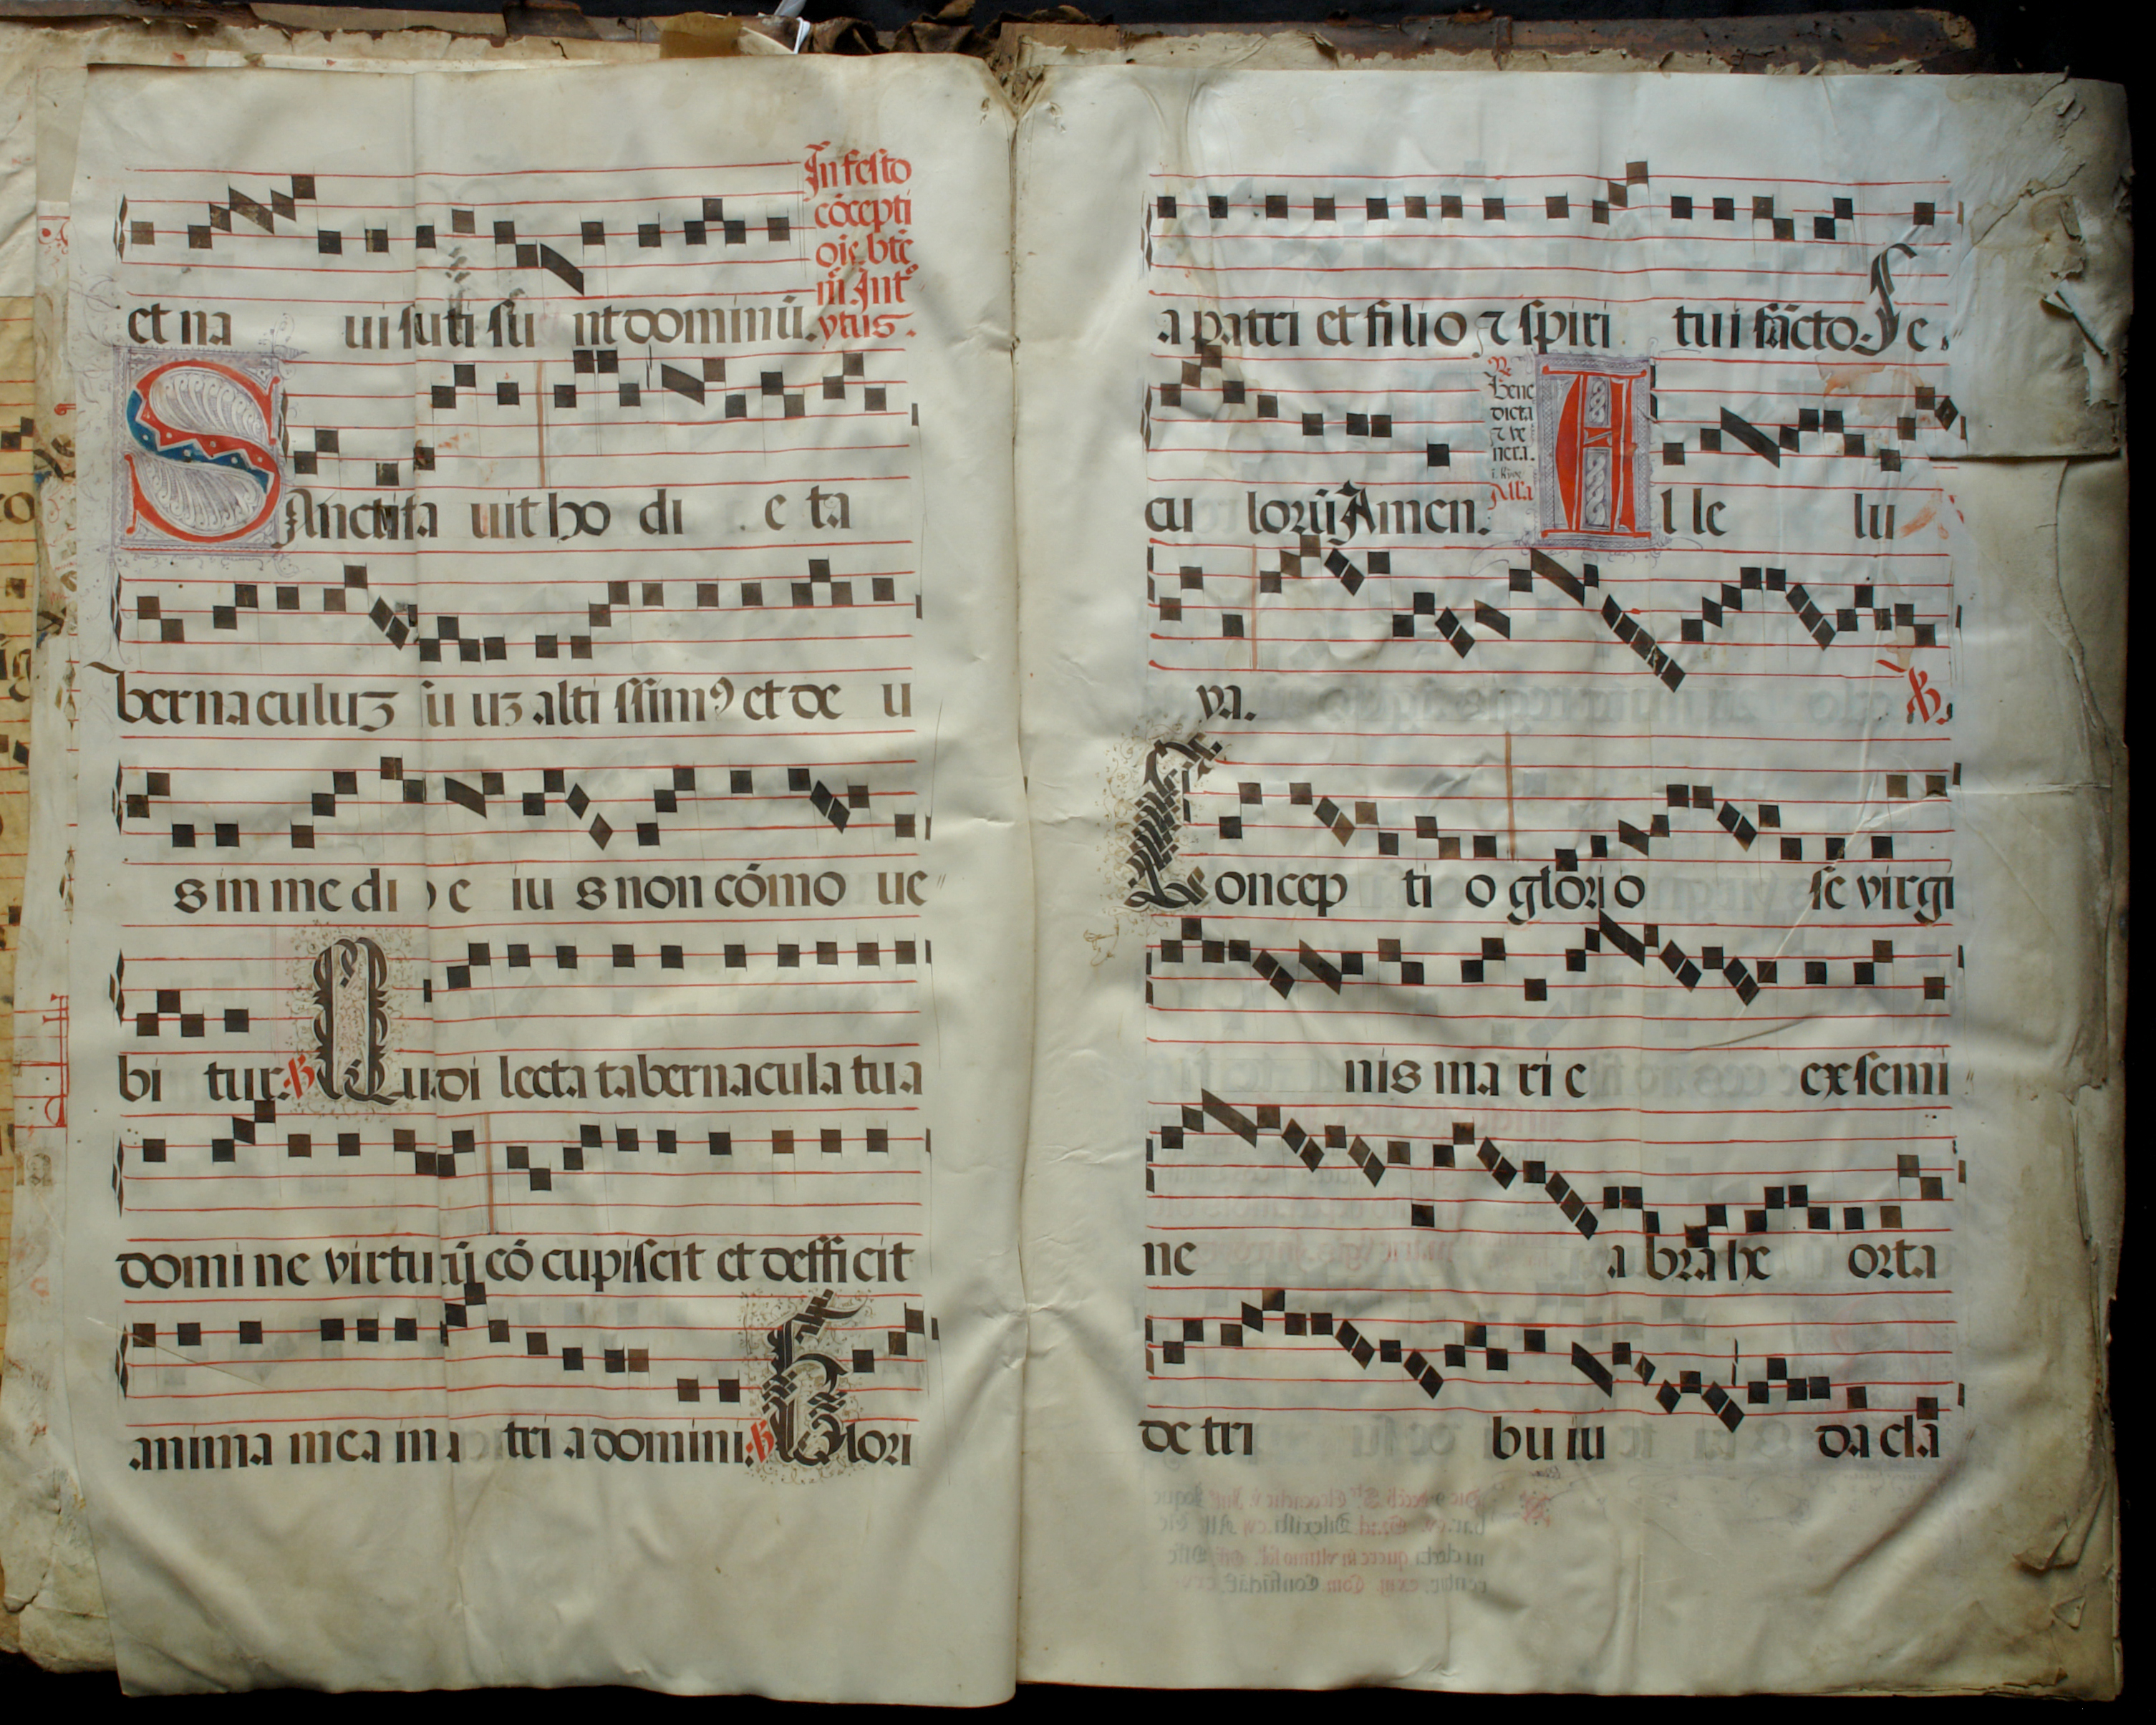 et na ui suti su nt dominū.
In festo
cōcepti
oīe btē
m̄. Int°
ytus.
SAnctifica uit ho di e ta
bernaculuʒ su uʒ alti ssimꝯ et de u
s in me di o e iu s non cōmo ue
bi tur. ℣ Quā di lecta tabernacula tua
domi ne virtutū cō cupiscit et defficit
anima mea in a tri a domini. ℣ Glori
a patri et fi li o ⁊ spiri tu i sācto. Se
cu lorū Amen.
Bene
dicta
⁊ ve
nera.
Alla
Al le lu
ya. ℣.
Concep ti o glori o se virgi
nis ma ri e ex semi
ne a bra he orta
de tri bu iu da cla